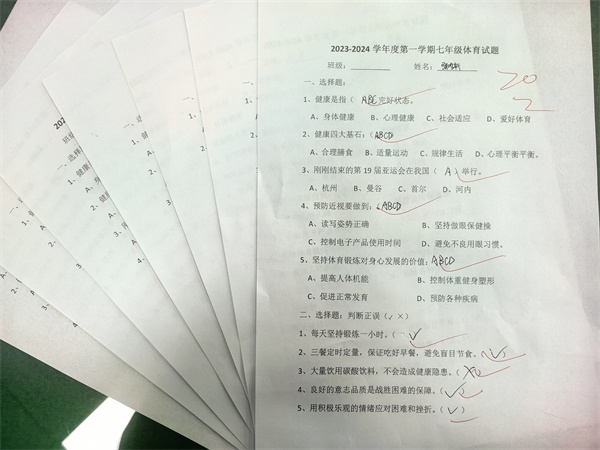 2023-2024 学年度第一学期七年级体育试题
班级：________ 姓名：
20
2
一、选择题：
1、健康是指（ ABC 完好状态。
A、身体健康 B、心理健康 C、社会适应 D、爱好体育
2、健康四大基石：（ABCD
A、合理膳食 B、适量运动 C、规律生活 D、心理平衡平衡。
3、刚刚结束的第 19 届亚运会在我国（ A ）举行。
A、杭州 B、曼谷 C、首尔 D、河内
4、预防近视要做到：（ABCD
A、读写姿势正确 B、坚持做眼保健操
C、控制电子产品使用时间 D、避免不良用眼习惯。
5、坚持体育锻炼对身心发展的价值：ABCD
A、提高人体机能 B、控制体重健身塑形
C、促进正常发育 D、预防各种疾病
二、选择题：判断正误（✓ ×）
1、每天坚持锻炼一小时。（ ✓
2、三餐定时定量，保证吃好早餐，避免盲目节食。（✓）
3、大量饮用碳酸饮料，不会造成健康隐患。（×）
4、良好的意志品质是战胜困难的保障。（✓）
5、用积极乐观的情绪应对困难和挫折。（✓）